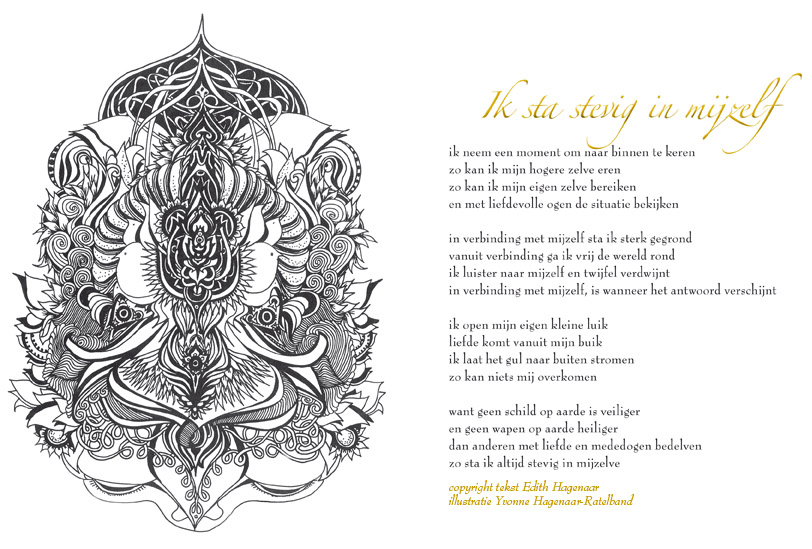 Ik sta stevig in mijzelf
ik neem een moment om naar binnen te keren
zo kan ik mijn hogere zelve eren
zo kan ik mijn eigen zelve bereiken
en met liefdevolle ogen de situatie bekijken
in verbinding met mijzelf sta ik sterk gegrond
vanuit verbinding ga ik vrij de wereld rond
ik luister naar mijzelf en twijfel verdwijnt
in verbinding met mijzelf, is wanneer het antwoord verschijnt
ik open mijn eigen kleine luik
liefde komt vanuit mijn buik
ik laat het gul naar buiten stromen
zo kan niets mij overkomen
want geen schild op aarde is veiliger
en geen wapen op aarde heiliger
dan anderen met liefde en mededogen bedelven
zo sta ik altijd stevig in mijzelve
copyright tekst Edith Hagenaar
illustratie Yvonne Hagenaar-Ratelband